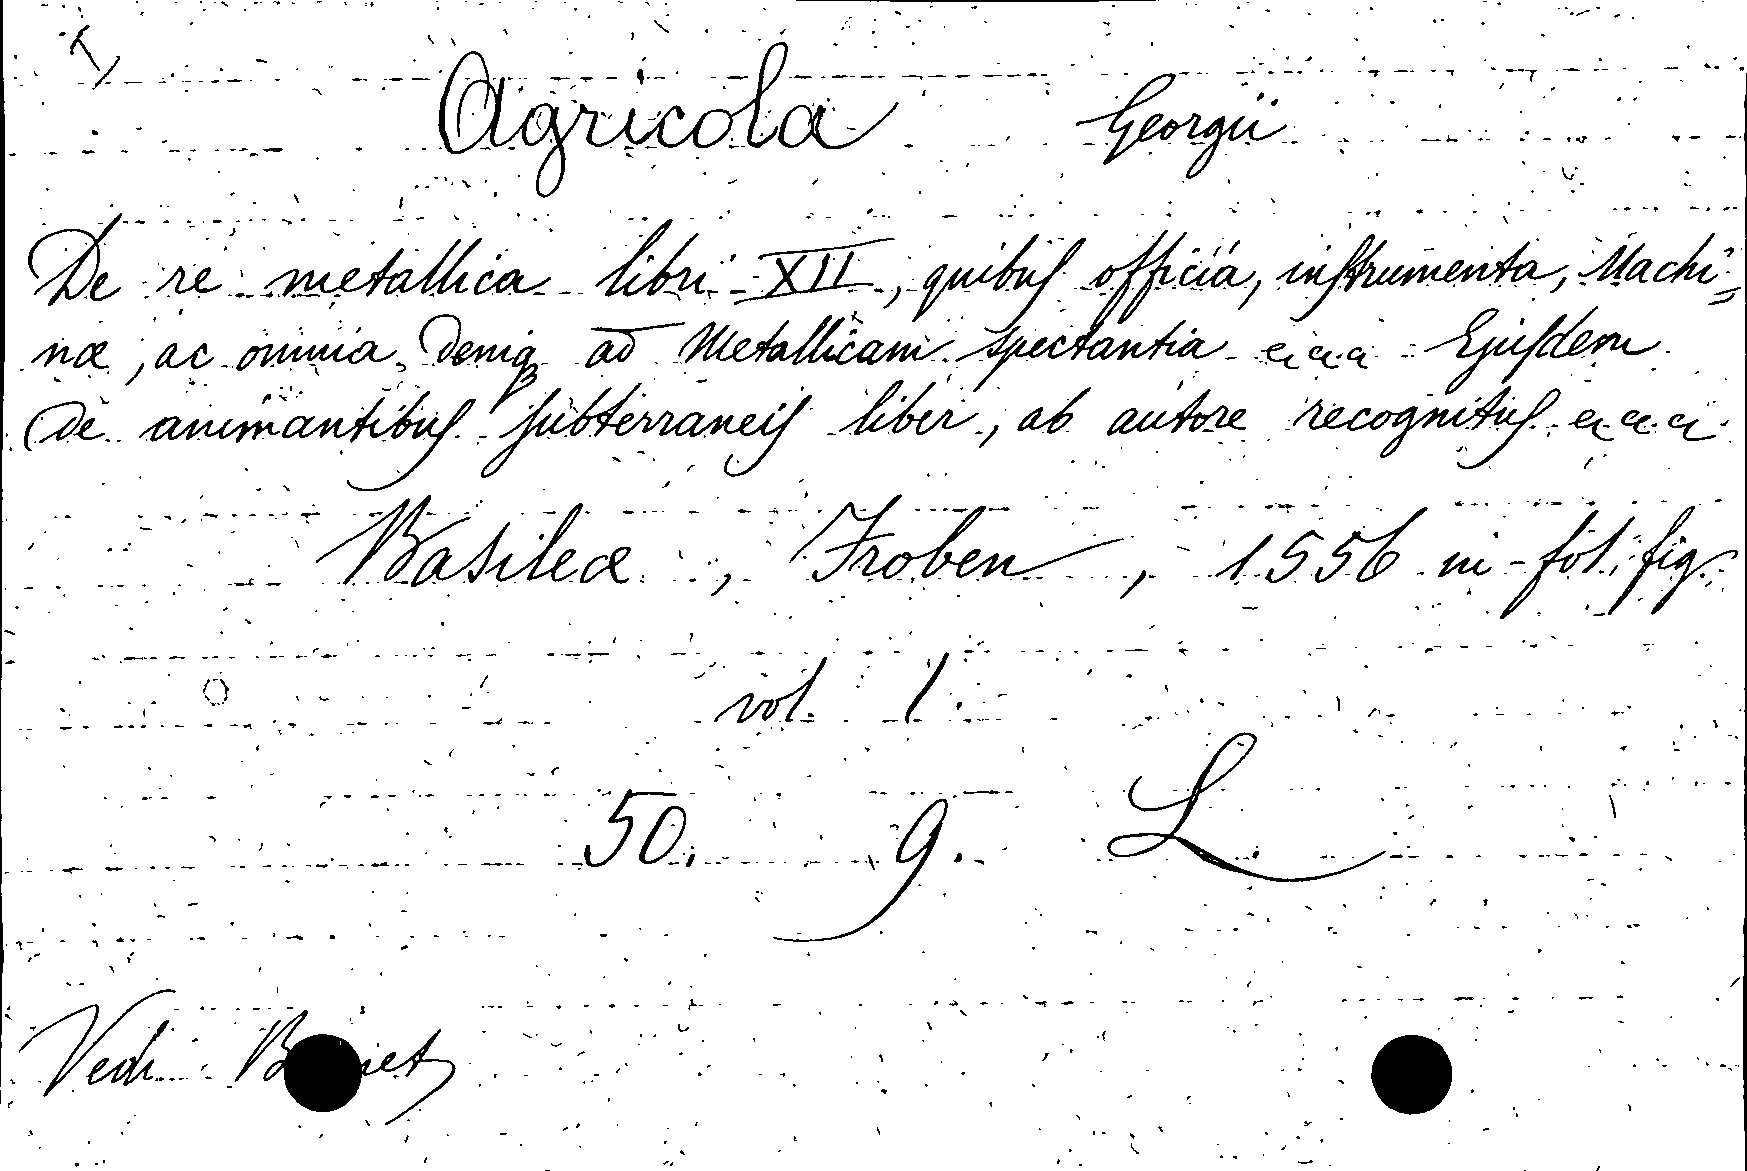 Agricola Georgii
De re metallica libri XII, quibus officia, instrumenta, Machi=
næ, ac omnia deniq; ad Metallicam spectantia &&& Ejusdem
De animantibus subterraneis liber, ab autore recognitus &&&
Basileæ, Froben, 1556 in-fol. fig.
vol. 1.
50. 9. L
Vedi